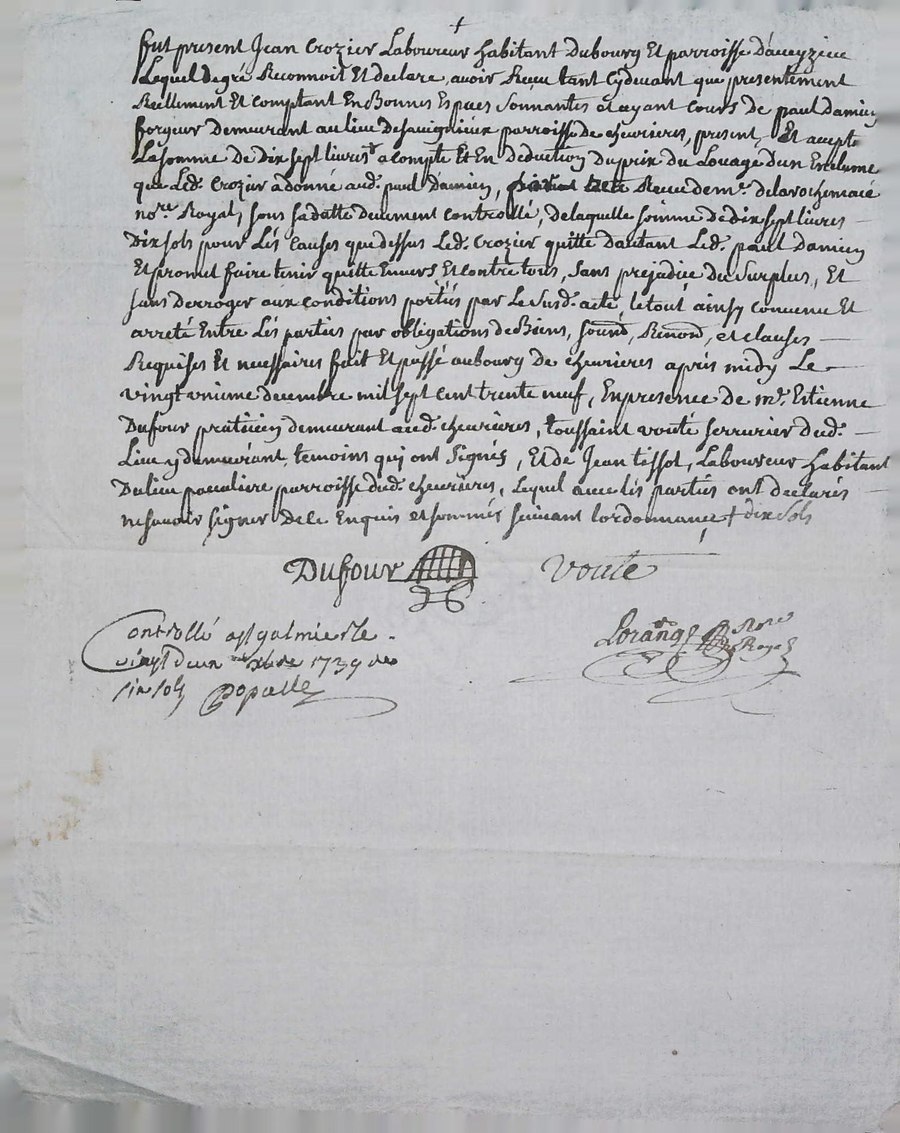 +
fut present Jean Crozier Laboureur habitant Dubourg Et parroisse D'aveyzieu
Lequel degré Reconnoit Et declare, avoir Receu tant Cydevant que presentement
Reellement Et Comptant En Bonnes Espaces Sonnantes et ayant Cours de paul Damien
forgeur Demeurant au lieu de parroisse de chevrieres, present, Et accepte
La somme de dix sept livres + a compte Et En Deduction Du prix du Louage d'un Enclume
que Led. Crozier a donné aud. paul Damien, acte Receu de me. delarochemacé
nore. Royal, sous sa datte Deuement Controllé, de laquelle somme de dix sept livres
Dix sols pour Lés Causes que dessus Led. Crozier quitte D'autant Led. paul Damien
Et promet faire tenir quitte Envers Et Contre tous, Sans prejudice Du Surplus, Et
Sans Derroger aux Conditions portés par Le susd. acte, le tout ainsy Convenu Et
arreté Entre Lés parties par obligations de Biens, soumd. Renond. et clauses
Requises Et necessaires fait Et passé au bourg de chevrieres aprés midy Le
vingt unieme decembre mil sept cent trente neuf, En presence de me. Estienne
Dufour praticien demeurant aud. chevrieres, toussaint vouté serrurier dud.
Lieu y demeurant, temoins qui ont signés, Et de Jean tissot, Laboureur habitant
Du lieu parroisse dud. chevrieres, Lequel avec lés parties ont declarés
ne savoir signer De ce Enquis et sommés suivant l'ordonnance + dix sols
Dufour voute
Controllé a st galmier le
vingt deux xbre 1739 reçu
six sols
Lorange Nore Royal